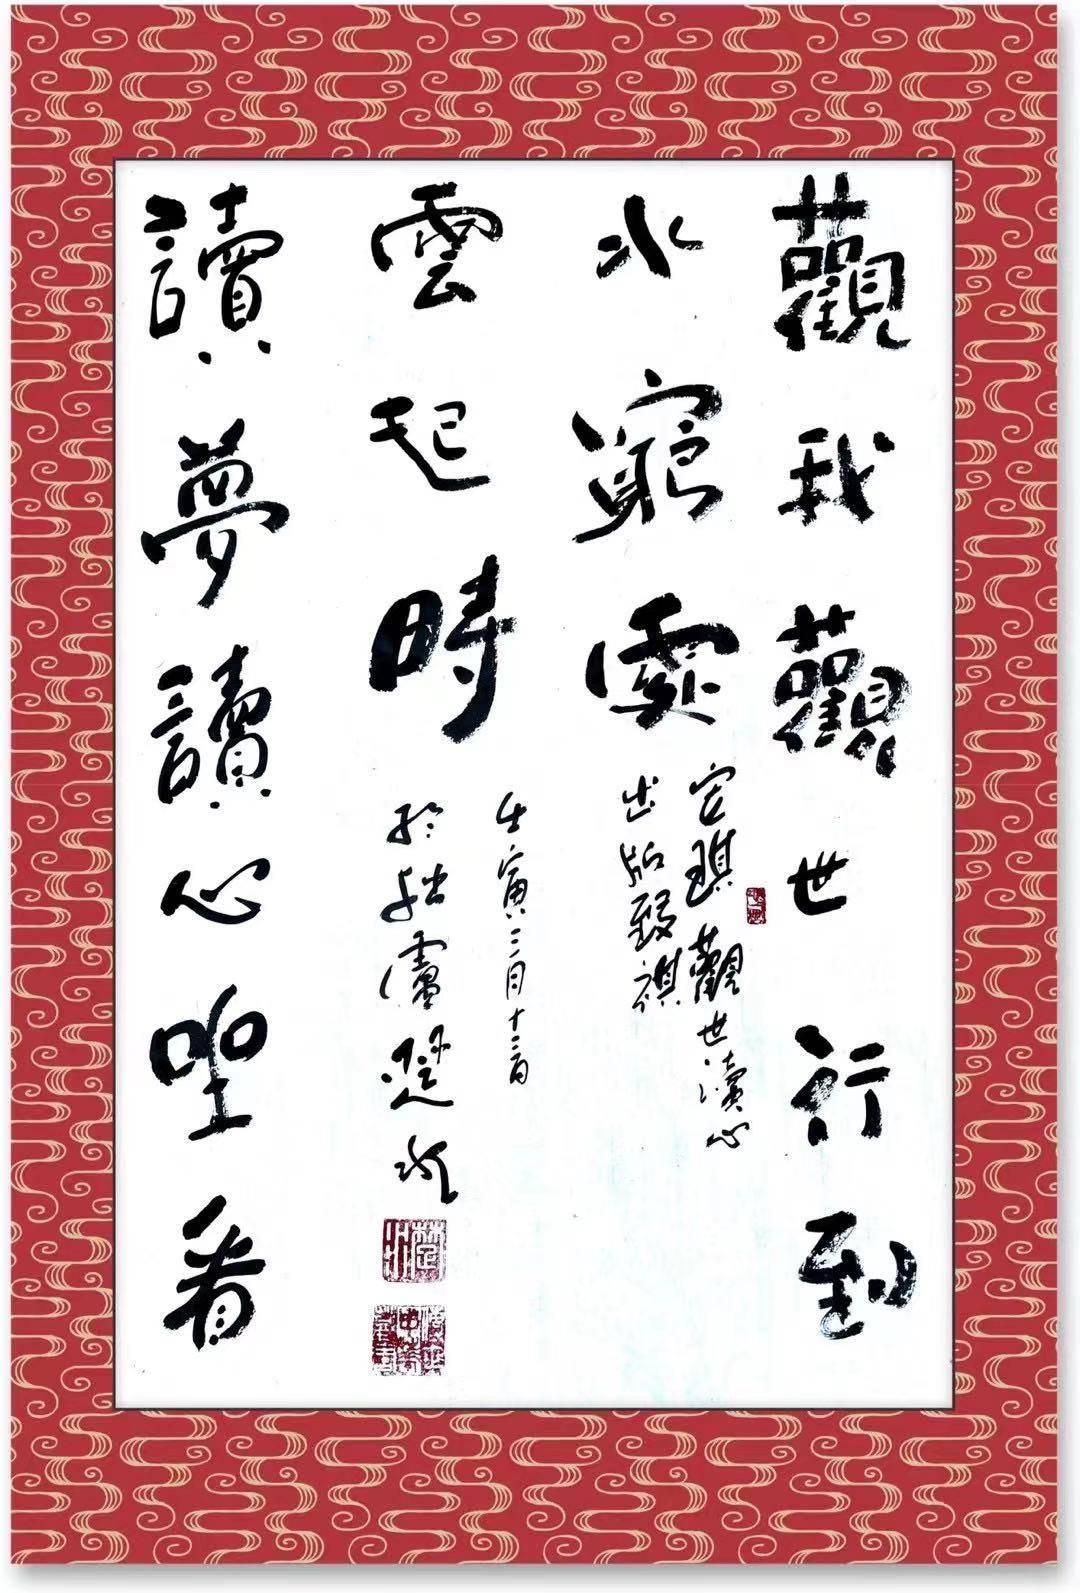 觀我觀世行到
水窮處
琪觀世讀心
出版
讀夢讀心坐看
雲起時
壬寅三月十二日
於